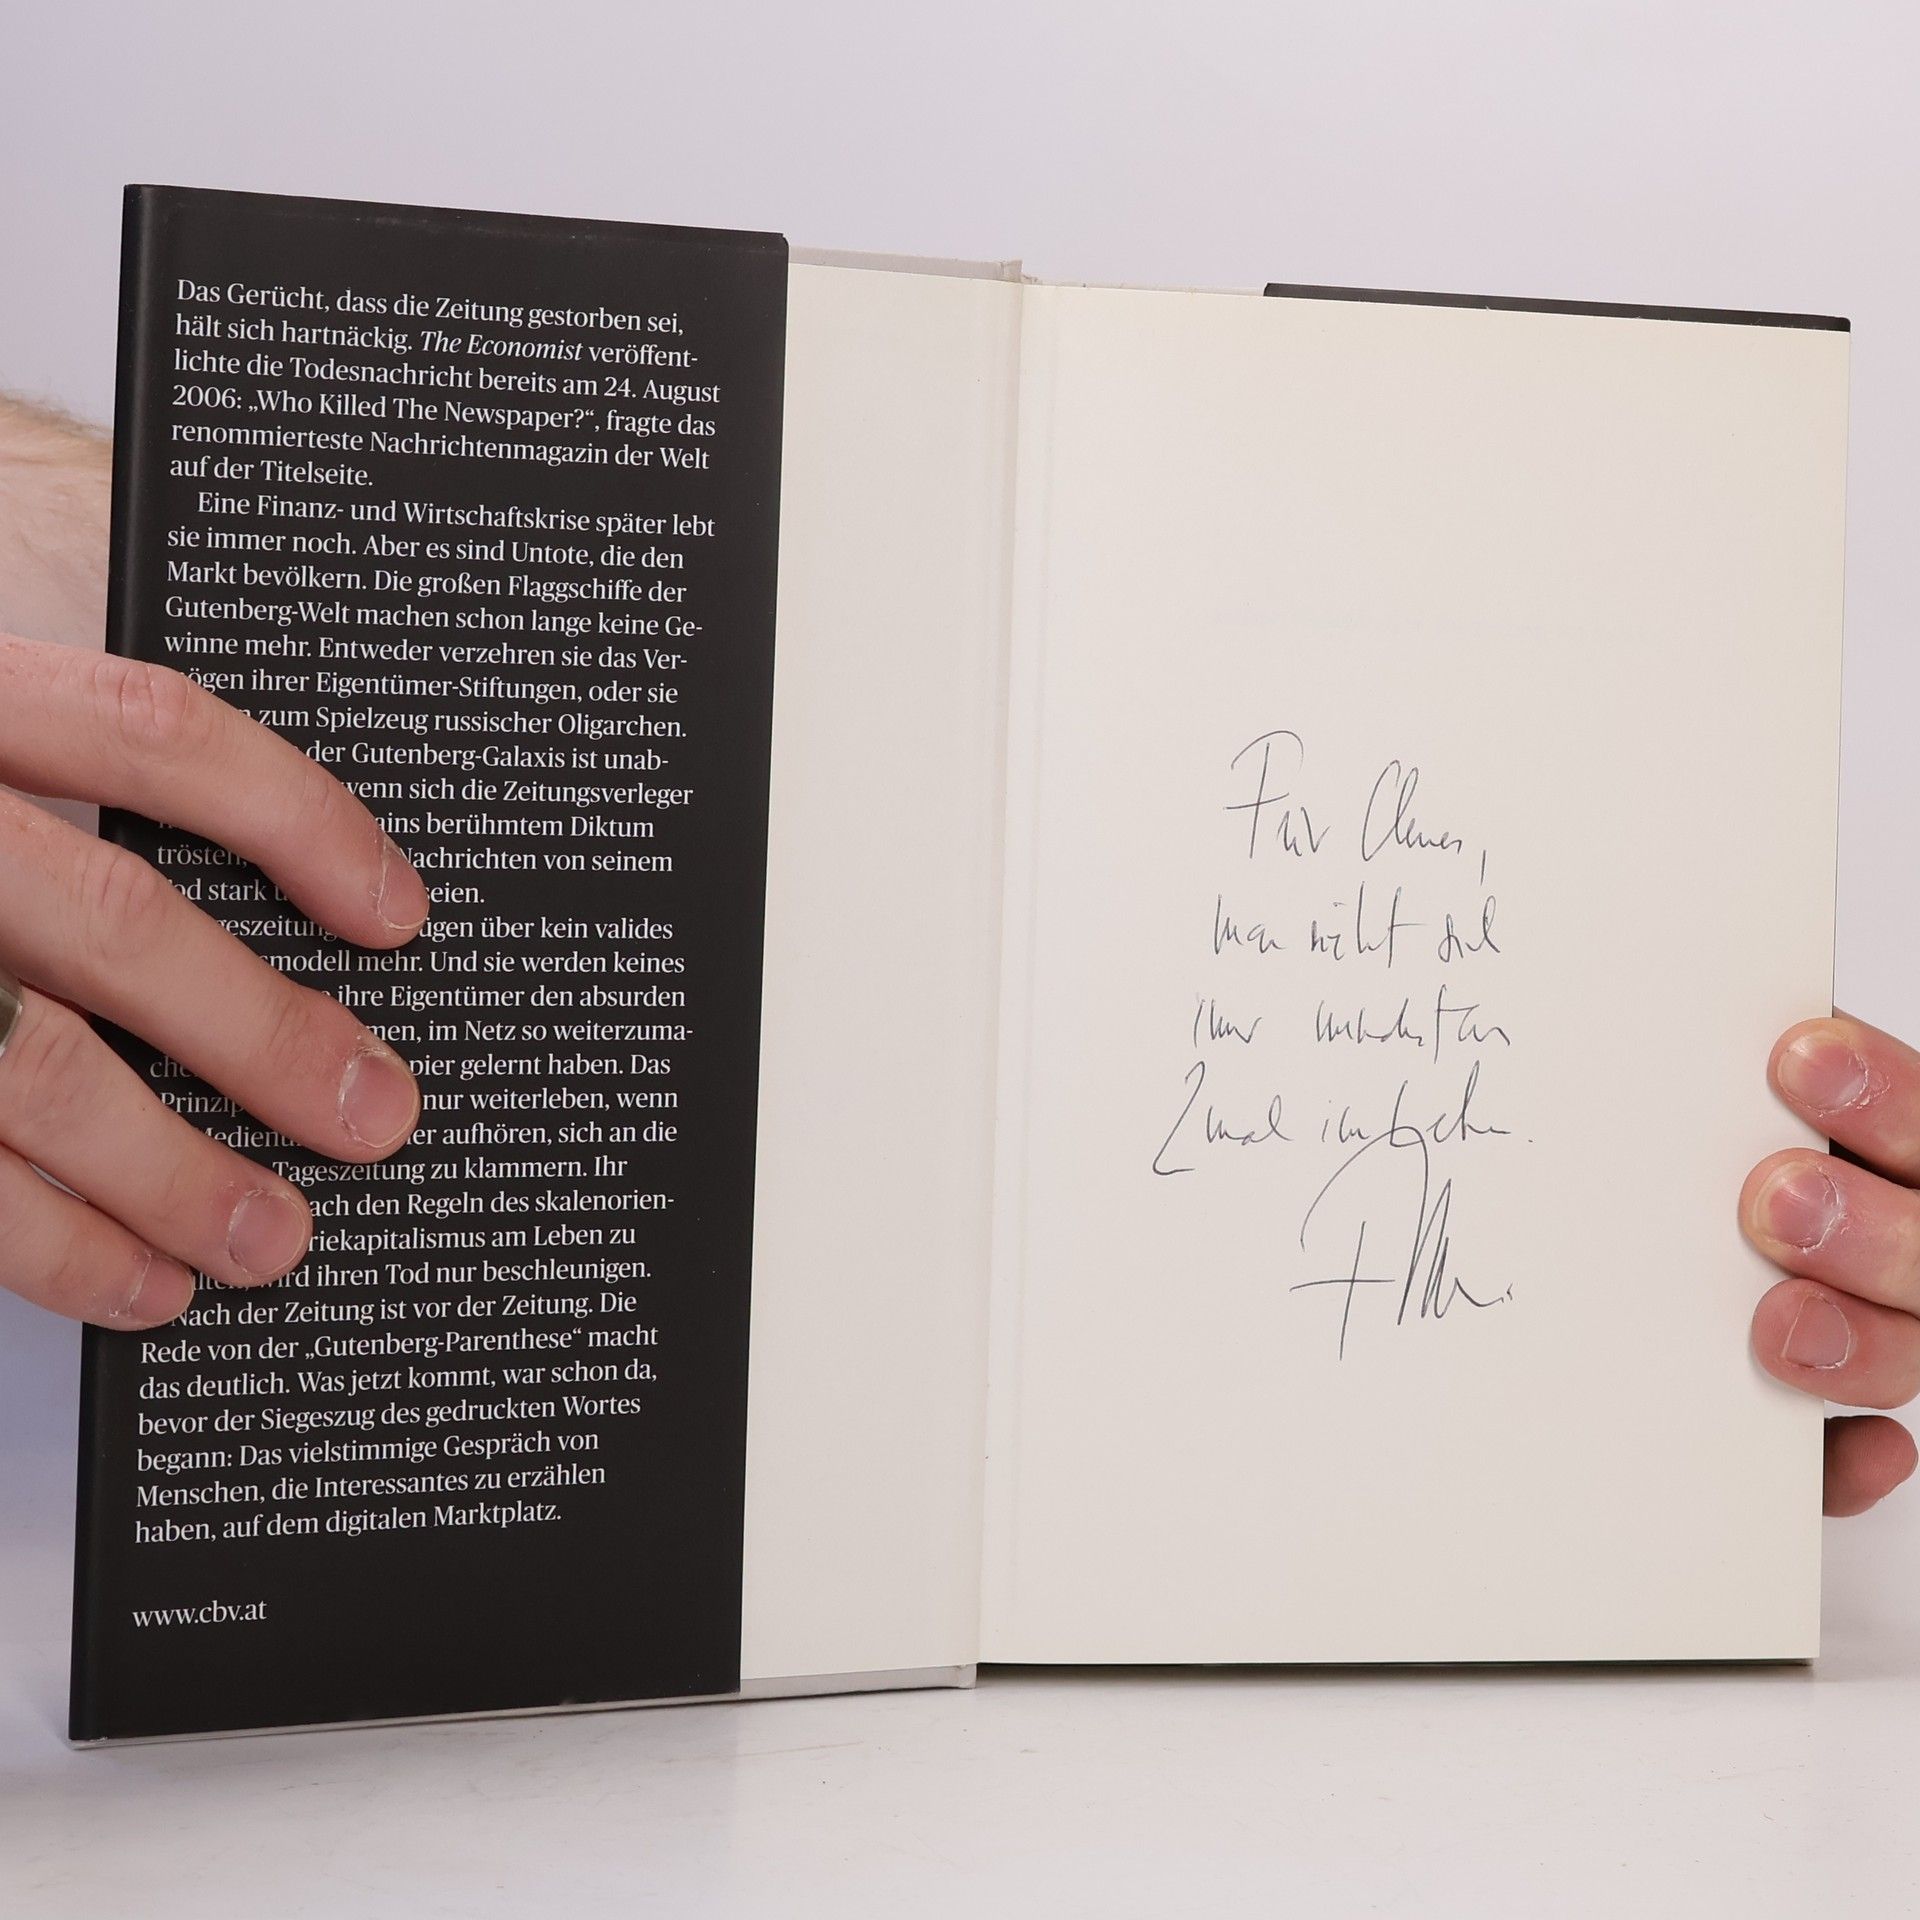 Das Gerücht, dass die Zeitung gestorben sei,
hält sich hartnäckig. The Economist veröffent-
lichte die Todesnachricht bereits am 24. August
2006: „Who Killed The Newspaper?“, fragte das
renommierteste Nachrichtenmagazin der Welt
auf der Titelseite.
Eine Finanz- und Wirtschaftskrise später lebt
sie immer noch. Aber es sind Untote, die den
Markt bevölkern. Die großen Flaggschiffe der
Gutenberg-Welt machen schon lange keine Ge-
winne mehr. Entweder verzehren sie das Ver-
ögen ihrer Eigentümer-Stiftungen, oder sie
zum Spielzeug russischer Oligarchen.
der Gutenberg-Galaxis ist unab-
wenn sich die Zeitungsverleger
ains berühmtem Diktum
trösten, Nachrichten von seinem
od stark seien.
geszeitung ügen über kein valides
smodell mehr. Und sie werden keines
ihre Eigentümer den absurden
men, im Netz so weiterzuma-
che pier gelernt haben. Das
Prinzip nur weiterleben, wenn
Medienu er aufhören, sich an die
Tageszeitung zu klammern. Ihr
ach den Regeln des skalenorien-
riekapitalismus am Leben zu
rd ihren Tod nur beschleunigen.
Nach der Zeitung ist vor der Zeitung. Die
Rede von der „Gutenberg-Parenthese“ macht
das deutlich. Was jetzt kommt, war schon da,
bevor der Siegeszug des gedruckten Wortes
begann: Das vielstimmige Gespräch von
Menschen, die Interessantes zu erzählen
haben, auf dem digitalen Marktplatz.
www.cbv.at
Für
man sieht sich
immer mindestens
2mal im Leben.